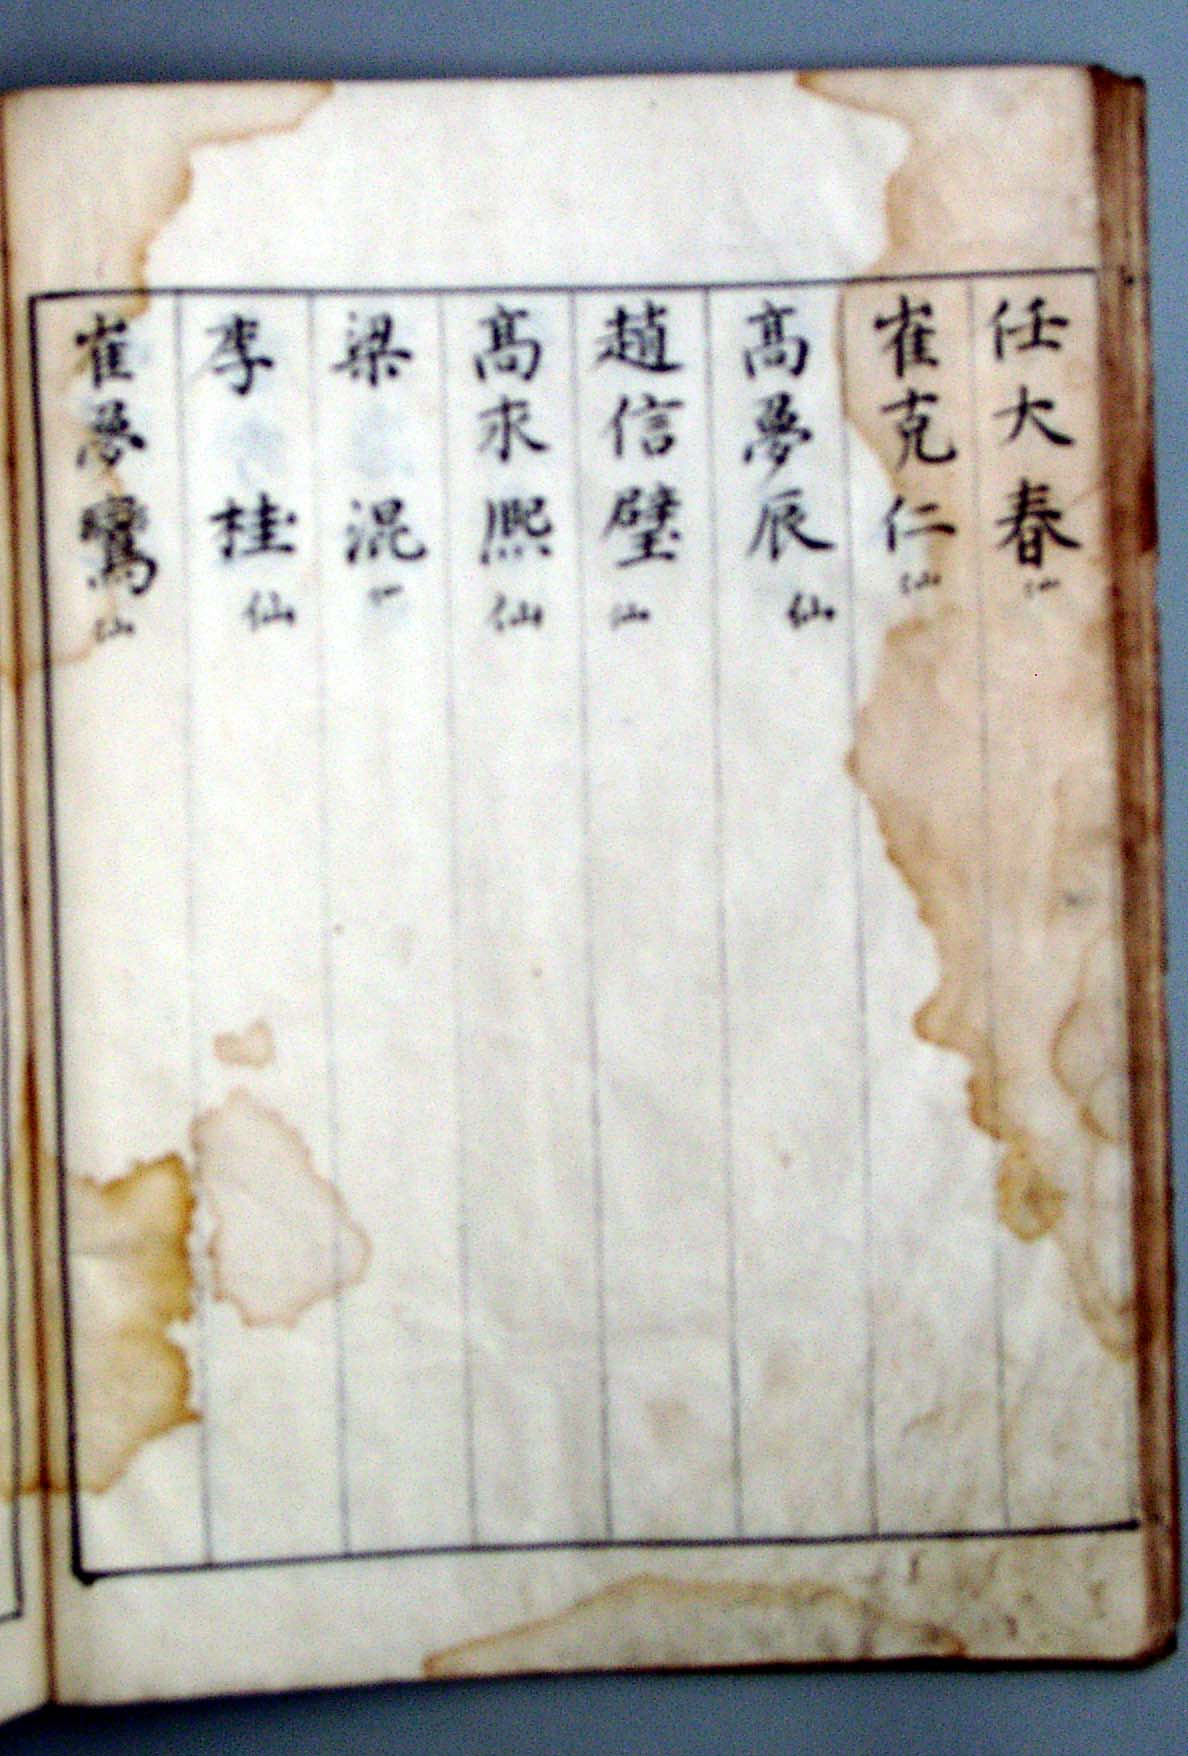 任大春仙
崔克仁仙
髙夢辰仙
趙信璧仙
髙求熈仙
梁混仙
李桂仙
崔夢鸞仙